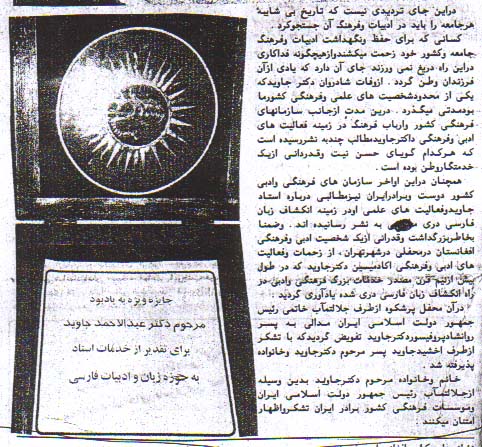 دراین جای تردیدی نیست که تاریخ بی شایبهٔ
هرجامعه را باید در ادبیات وفرهنگ آن جستجوکرد .
کسانی که برای حفظ ونگهداشت ادبیات وفرهنگ
جامعه وکشور خود زحمت میکشندوازهیچگونه فداکاری
دراین راه دریغ نمی ورزند جای آن دارد که یادی ازآن
فرزندان وطن گردد . ازوفات شادروان دکتر جاویدکه
یکی از معدودشخصیت های علمی وفرهنگی کشورما
بودمدتی میگذرد . درین مدت ازجانب سازمانهای
فرهنگی کشور وارباب فرهنگ در زمینه فعالیت های
ادبی وفرهنگی داکترجاویدمطالب چندبه نشررسیده است
که هرکدام گویای حسن نیت وقدردانی ازیک
خدمتگاروطن بوده است .
همچنان دراین اواخر سازمان های فرهنگی وادبی
کشور دوست وبرادرایران نیزمطالبی درباره استاد
جاویدوفعالیت های علمی اودر زمینه انکشاف زبان
فارسی دری به نشر رسانیده اند . وضمنا
بخاطربزرگداشت وقدرانی ازیک شخصیت ادبی وفرهنگی
افغانستان درمحفلی درشهرتهران، از زحمات وفعالیت
های ادبی وفرهنگی اکادمیسین دکترجاوید که در طول
بیش ازنیم قرن مصدر خدمات بزرگ فرهنگی وادبی در
راه انکشاف زبان فارسی دری شده یادآوری گردید :
درآن محفل پرشکوه ازطرف جلالتمآب خاتمی رئیس
جمهور دولت اسلامی ایران مدالی به پسر
روانشادپروفیسوردکترجاوید تفویض گردیدکه با تشکر
ازطرف اخشیدجاوید پسر مرحوم دکترجاوید وخانواده
پذیرفته شد .
خانم وخانواده مرحوم دکترجاوید بدین وسیله
ازجلالتمآب رئیس جمهور دولت اسلامی ایران
وموسسات فرهنگی کشور برادر ایران تشکرواظهار
امتنان میکنند .
جایزه ویژه به یادبود
مرحوم دکتر عبدالاحمد جاوید
برای تقدیر از خدمات استاد
به حوزه زبان و ادبیات فارسی